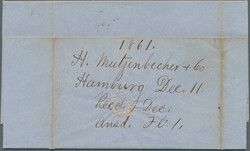 1861.
H. Mutzenbecher & Co
Hamburg Dec. 11
Recd. Dec.
ansd.